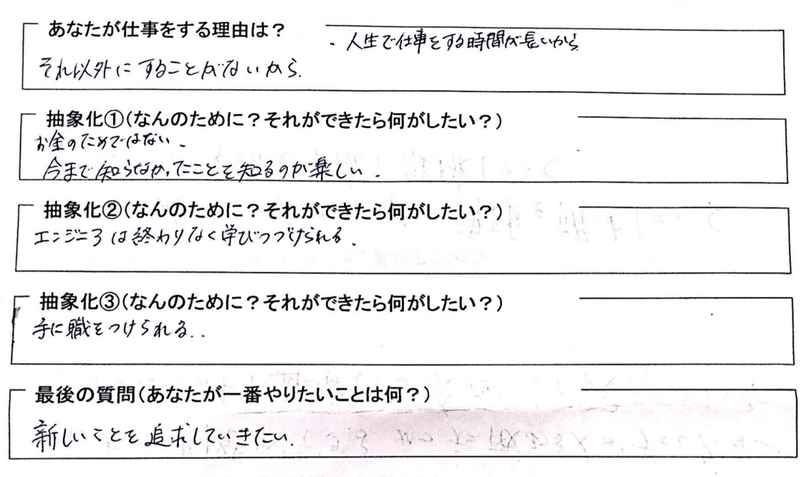 あなたが仕事をする理由は？
・人生で仕事をする時間が長いから
それ以外にすることがないから.
抽象化①(なんのために？それができたら何がしたい？)
お金のためではない.
今まで知らなかったことを知るのが楽しい.
抽象化②(なんのために？それができたら何がしたい？)
エンジニアは終わりなく学びつづけられる.
抽象化③(なんのために？それができたら何がしたい？)
手に職をつけられる..
最後の質問(あなたが一番やりたいことは何？)
新しいことを追求していきたい.